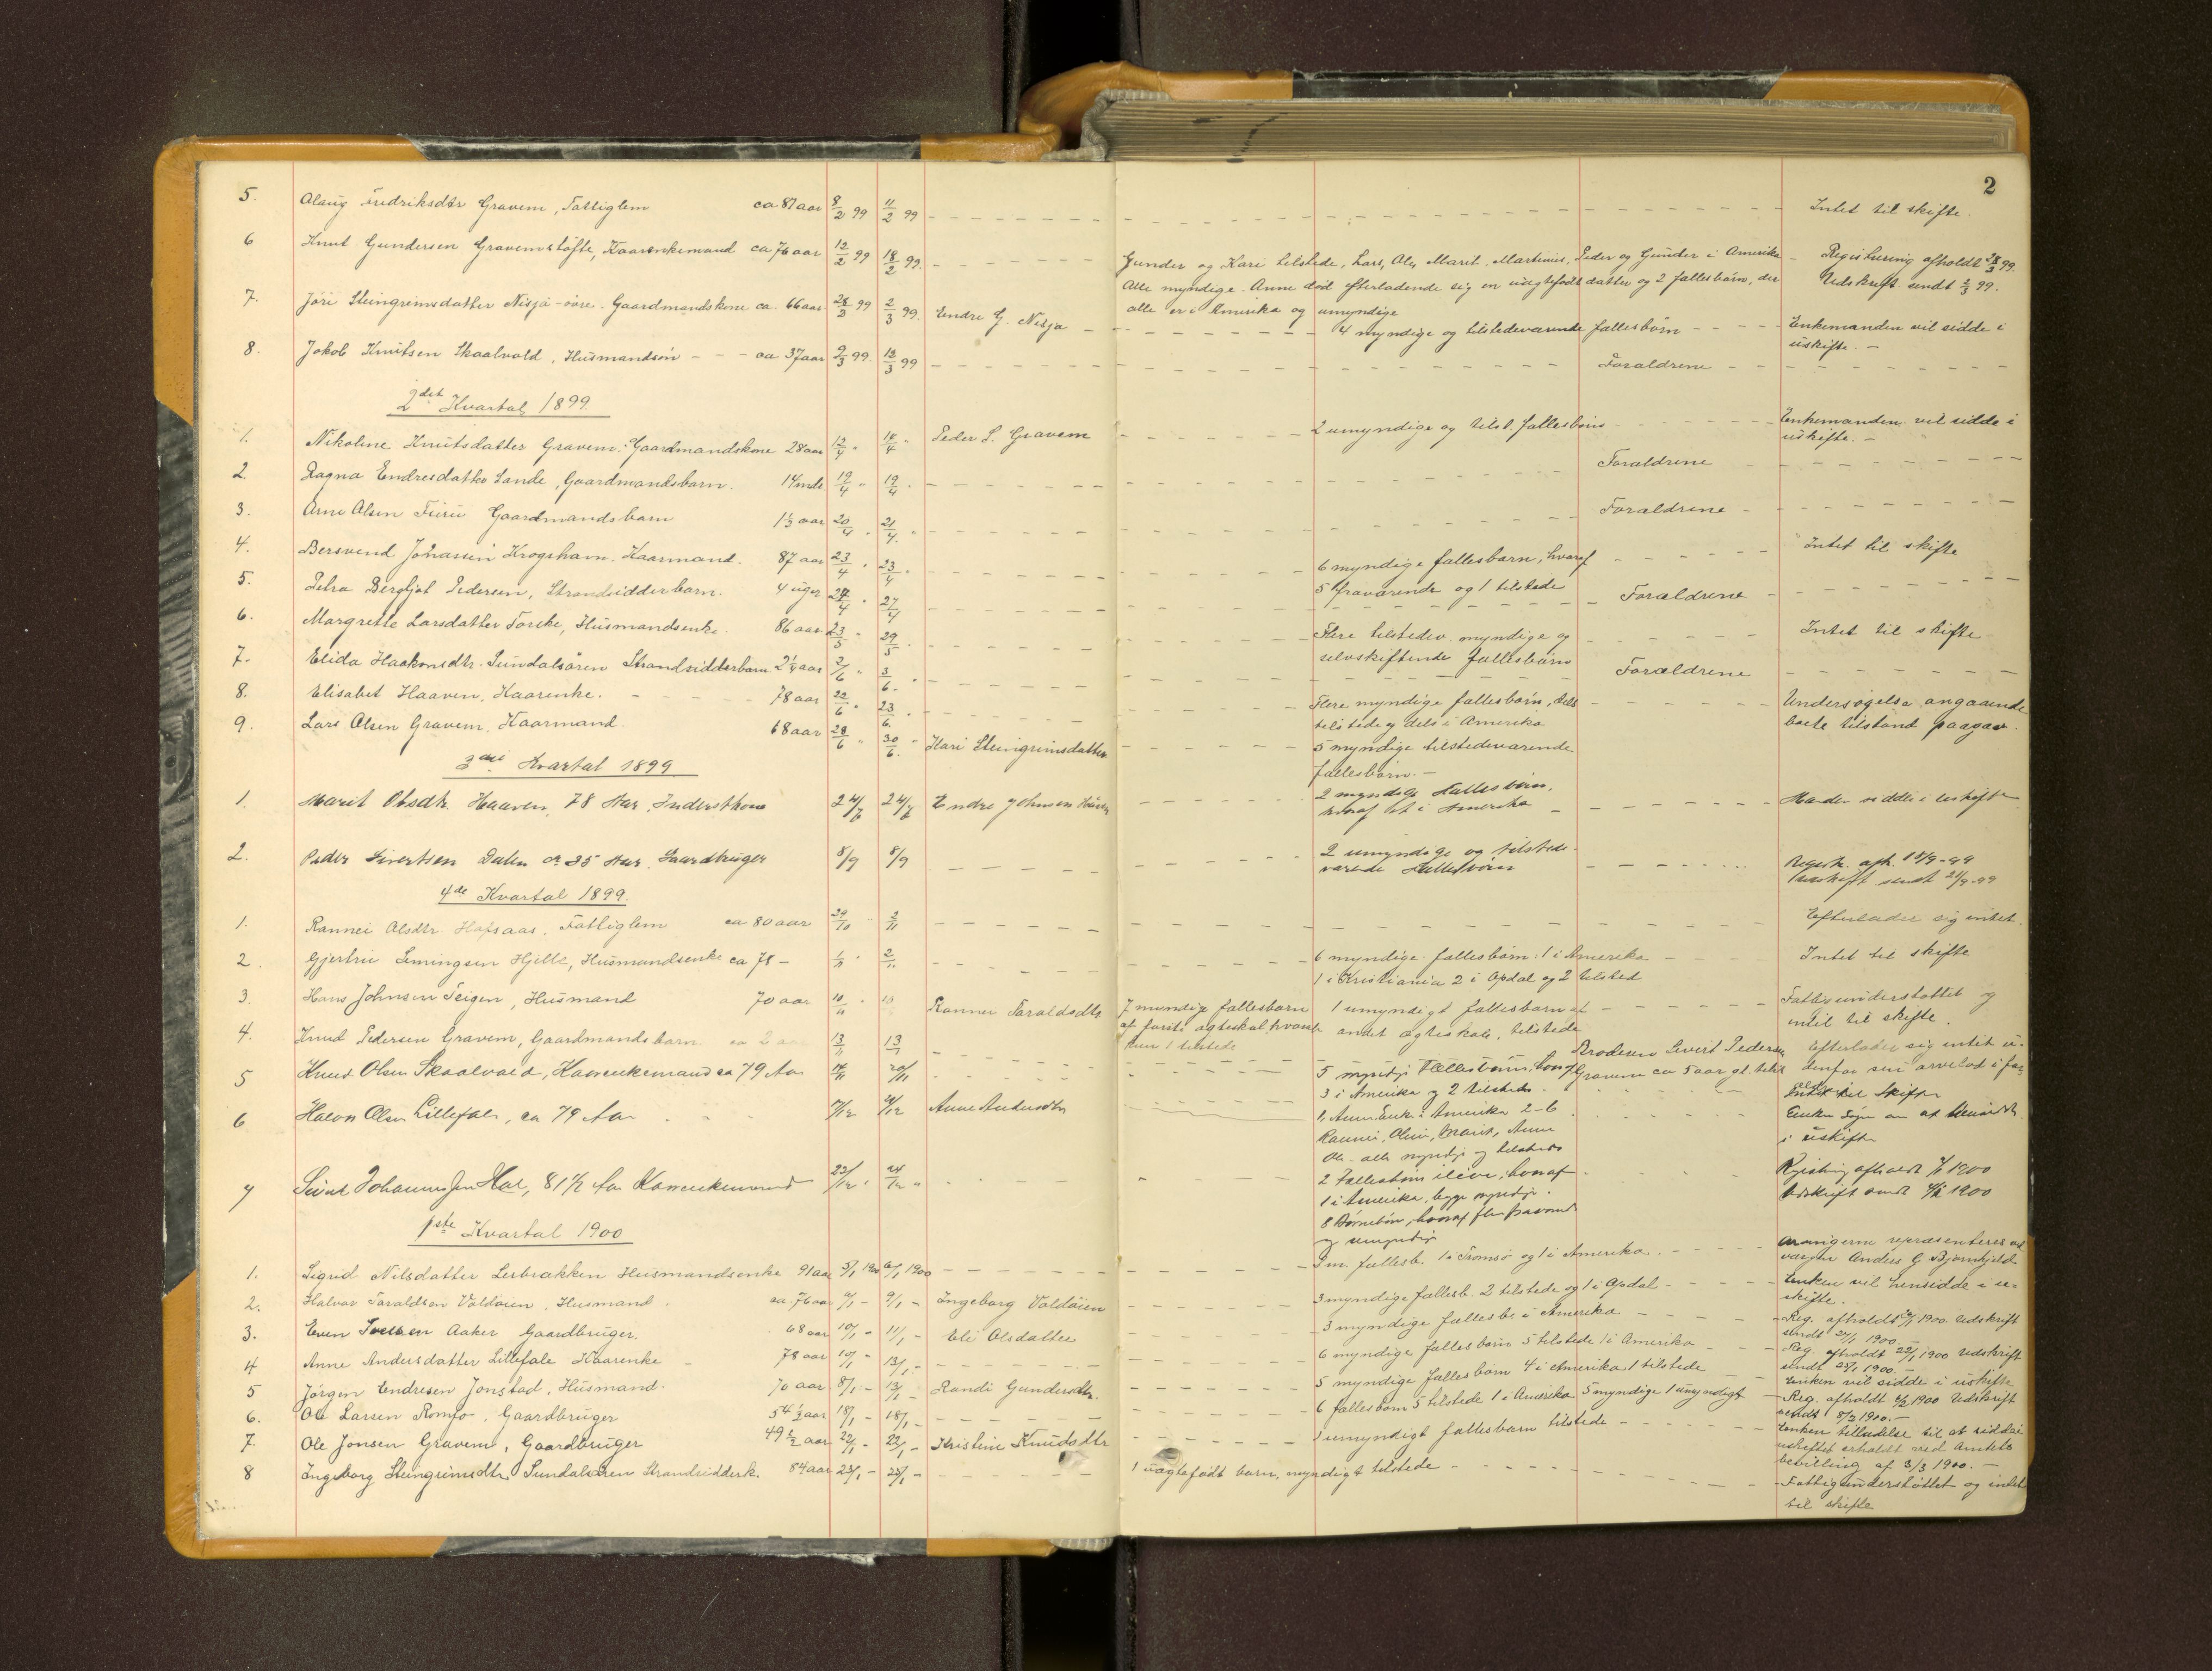 2
5. Alaug Fredriksdtr Gravem, Fattiglem ca 87 aar 8/2 99 11/2 99 Intet til skifte.
6 Knut Gundersen Gravemsløfte, Kaarenkemand ca 76 aar 12/2 99 18/2 99. Gunder og Kari tilstede, Lars, Ole, Marit, Martinus, Peder og Gunder i Amerika Registrering afholdt 28/3 99.
Alle myndige. Anne død efterladende sig en uægtefødt datter og 2 fællesbørn, der Udskrift sendt 2/3 99.
alle er i Amerika og umyndige
7. Jøri Steingrimsdatter Nisja-øvre. Gaardmandskone ca. 66 aar 28/2 99 2/3 99. Endre G. Nisja 4 myndige og tilstedeværende fællesbørn Enkemanden vil sidde i
uskifte. –
8. Jokob Knutsen Skaalvold, Husmandsøn ca 37 aar 9/3 99. 12/3 99 Forældrene
2det Kvartal 1899.
1. Nikoline Knutsdatter Gravem. Gaardmandskone 28 aar 12/4 " 18/4 " Peder S. Gravem 2 umyndige og tilst. fællesbørn Enkemanden vil sidde i
uskifte. –
2. Ragna Endresdatter Sande, Gaardmandsbarn. 14 mdr 19/4 " 19/4 " Forældrene
3. Arne Olsen Furu Gaardmandsbarn 1½ aar 20/4 " 21/4 " Forældrene
4. Bersvend Johansen Krogshavn. Kaarmand. 87 aar 23/4 " 23/4 " 6 myndige fællesbarn, hvoraf Intet til skifte
5 fraværende og 1 tilstede
5. Petra Bergljot Pedersen, Strandsidderbarn. 4 uger 27/4 " 27/4 Forældrene
6. Margrette Larsdatter Torske, Husmandsenke. 86 aar 23/5 " 29/5 " Flere tilstedev. myndige og Intet til skifte
selvskiftende fællesbørn
7. Elida Haakonsdtr. Sundalsøren Strandsidderbarn 2¼ aar 2/6 " 3/6 " Forældrene
8. Elisabet Haaven, Kaarenke. 78 aar 22/6 " 23/6 " Flere myndige fællesbørn, dels Undersøgelse angaaende
tilstede og dels i Amerika boets tilstand paagaar.
9. Lars Olsen Gravem, Kaarmand. 68 aar 28/6 " 30/6 " Kari Steingrimsdatter 5 myndige tilstedeværende
fællesbørn. –
3die Kvartal 1899
1. Marit Olsdtr. Haaven, 78 Aar, Inderstkone Endre Johnsen 2 myndige Fællesbørn,
hvoraf et i Amerika Manden sidder i uskifte
2. Peder Sivertsen Dalen ca 35 Aar. Gaardbruger 8/9 8/9 2 umyndige og tilstede-
værende Fællesbørn Registr. afh. 18/9-99
Udskrift sendt 21/9-99
4de Kvartal 1899.
1. Rannei Olsdtr Hafsaas. Fattiglem ca 80 aar 29/10 " 2/11 Efterlader sig intet.
2. Gjertru Hjelle, Husmandsenke ca 78 – 1/11 " 2/11 6 myndige fællesbørn: 1 i Amerika Intet til skifte
1 i Kristiania 2 i Opdal og 2 tilsted
3. Hans Johnsen Teigen, Husmand 70 aar 10/11 " Rannei Taraldsdtr 7 myndig fællesbarn 1 umyndigt fællesbarn af Fattigunderstøttet og
af første ægteskab hvoraf andet ægteskab, tilstede intet til skifte.
kun 1 tilstede
4. Knud Pedersen Gravem, Gaardmandsbarn ca 2 aar 13/11 13/11 Broderen Sivert Pedersen Efterlader sig intet u-
Gravem ca 5 aar gl. tilst. denfor sin arvelod i far
5 Knud Olsen Skaalvold, Kaarenkemand ca 79 Aar 14/11 20/11 5 myndige Fællesbørn, hvoraf
3 i Amerika og 2 tilstede Intet til Skifte
6 Halvor Olsen Lillefale, ca 79 Aar Anne Andersdtr 1, Anne Enke i Amerika 2-6
Rannei, Oline, Marit, Anne
Ole. alle myndige og tilstede i uskifte
7 Sivert Johannessen Hol, 81½ Aar Kaarenkemand 23/12 " 24/12 " 2 Fællesbørn ilive, hvoraf Registring afholdt 1900
1 i Amerika, begge myndige. Udskrift sendt 1900
8 Børnebørn, hvoraf flere fraværende
og umyndige
1ste Kvartal 1900
1. Sigrid Nilsdatter Lerbrækken Husmandsenke 91 aar 5/1 1900 6/1 1900 m. fællesb. 1 i Tromsø og 1 i Amerika. Arvingerne repræsenteres ved
værgen Anders G Bjørnhjeld
2. Halvor Taraldsen Voldøien, Husmand. ca. 76 aar 9/1 – 9/1 – Ingeborg Voldøien 3 myndige fællesb. 2 tilstede og 1 i Opdal Enken vil hensidde i u-
skifte.
3. Even Aaker Gaardbruger. 68 aar 10/1 – 11/1 – Eli Olsdatter 3 myndige fællesbø i Amerika Reg. afholdt 1900. Udskrift
sendt 1900.
4 Anne Andersdatter Lillefale Kaarenke 78 aar 10/1 – 13/1 – 6 myndige fællesbørn 5 tilstede 1 i Amerika Reg. afholdt 22/1 1900 Udskrift
sendt 25/1 1900.
5 Jørgen Endresen Jonstad, Husmand. 70 aar 8/1 – 13/1 – Randi Gundersdtr. 5 myndige fællesbørn 4 i Amerika 1 tilstede Enken vil sidde i uskifte
6. Ole Larsen Romfo, Gaardbruger 54½ aar 18/1 – 18/1 – 6 fællesbørn 5 tilstede 1 i Amerika 5 myndige 1 umyndigt Reg. afholdt 1900 Udskrift
sendt 8/2 1900. –
7. Ole Jonsen Gravem, Gaardbruger 49½ aar 22/1 – 22/1 – Kristine Knudsdtr 1 umyndigt fællesbarn tilstede Enken tilladelse til at sidde i
uskiftet erholdt ved Amtets
bevilling af 3/3 1900. –
8 Ingeborg Steingrimsdtr. Sundalsøren Strandsidderk. 84 aar 23/1 – 25/1 – 1 uægtefødt barn, myndigt tilstede Fattigunderstøttet og intet
til skifte